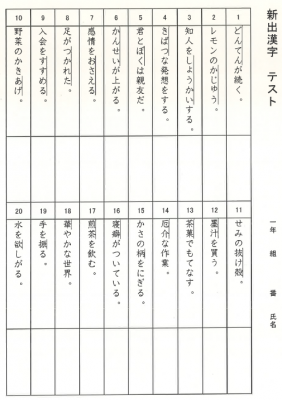 新出漢字 テスト
一年 組 番 氏名
1 どんでんが続く。
2 レモンのかじゅう。
3 知人をしょうかいする。
4 きばつな発想をする。
5 君とぼくは親友だ。
6 かんせいが上がる。
7 感情をおさえる。
8 足がつかれた。
9 入会をすすめる。
10 野菜のかきあげ。
11 せみの抜け殻。
12 墨汁を買う。
13 茶菓でもてなす。
14 厄介な作業。
15 かさの柄をにぎる。
16 寝癖がついている。
17 煎茶を飲む。
18 華やかな世界。
19 手を振る。
20 水を欲しがる。